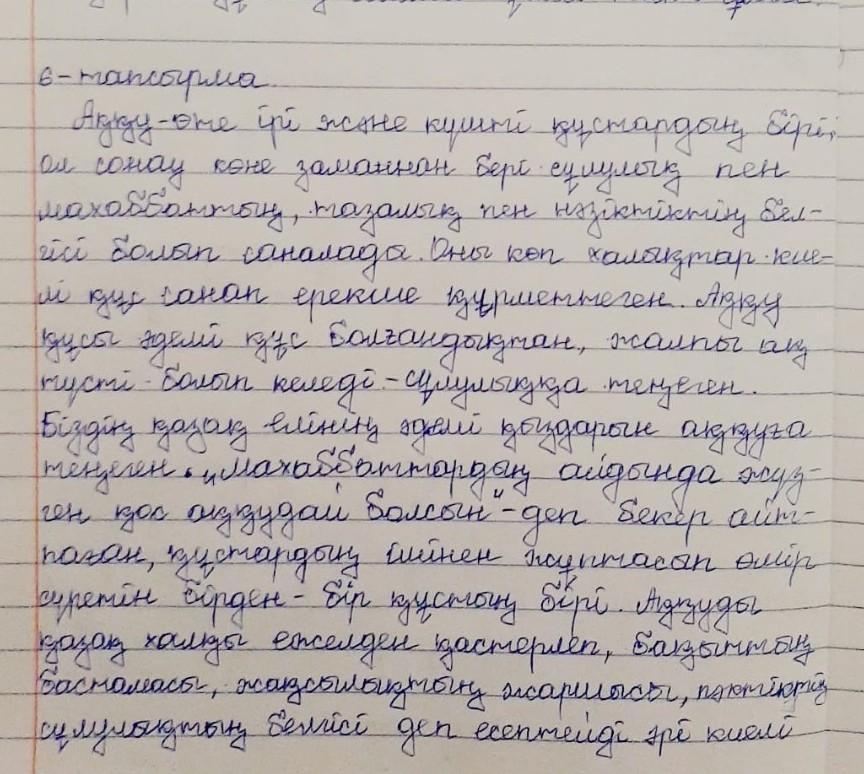 6-тапсырма
Аққу-өте ірі және күшті құстардың бірі,
ол сонау көне заманнан бері сұлулық пен
махаббаттың, тазалық пен нәзіктіктің бел-
гісі болып саналада. Оны көп халықтар кие-
лі құс санап ерекше құрметтеген. Аққу
құсы әдемі құс болғандықтан, жалпы ақ
түсті болып келеді-сұлулыққа теңеген.
Біздің қазақ елінің әдемі қыздарын аққуға
теңеген. „Махаббаттардың айдында жүз-
ген қос аққудай болсын"-деп бекер айт-
паған, құстардың ішінен жұптасып өмір
сүретін бірден-бір құстың бірі. Аққуды
қазақ халқы ежелден қастерлеп, бақыттың
бастамасы, жақсылықтың жаршысы, пәктіктің
сұлулықтың белгісі деп есептейді әрі киелі